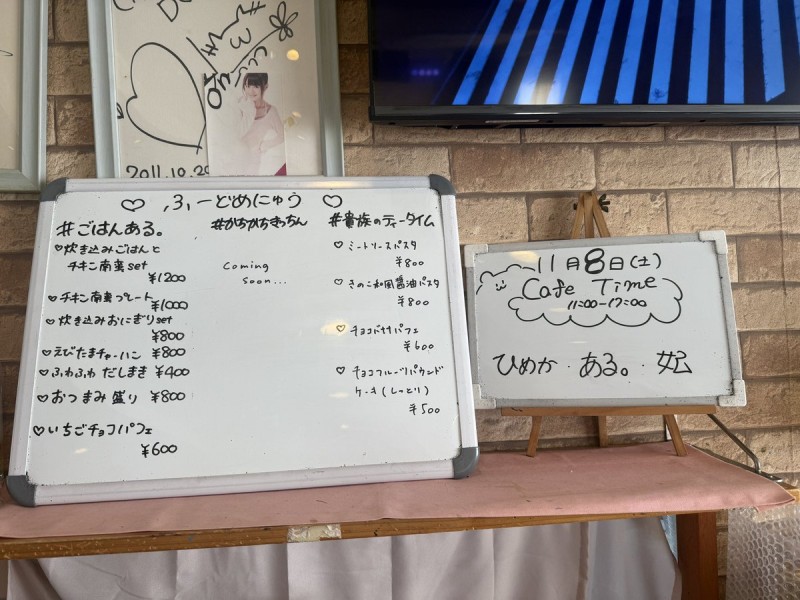 2011.10.20
♡ ふーどめにゅう ♡
#ごはんある。
♡炊き込みごはんと
チキン南蛮set
¥1200
♡チキン南蛮プレート
¥1000
♡炊き込みおにぎりset
¥800
♡えびたまチャーハン ¥800
♡ふわふわだしまき ¥400
♡おつまみ盛り ¥800
♡いちごチョコパフェ
¥600
#かちかちきっちん
Coming
soon...
#貴族のティータイム
♡ミートソースパスタ
¥800
♡きのこ和風醤油パスタ
¥800
♡チョコバナナパフェ
¥600
♡チョコフルーツパウンド
ケーキ(しっとり)
¥500
11月8日(土)
Cafe Time
11:00-17:00
ひめか・ある。・妃